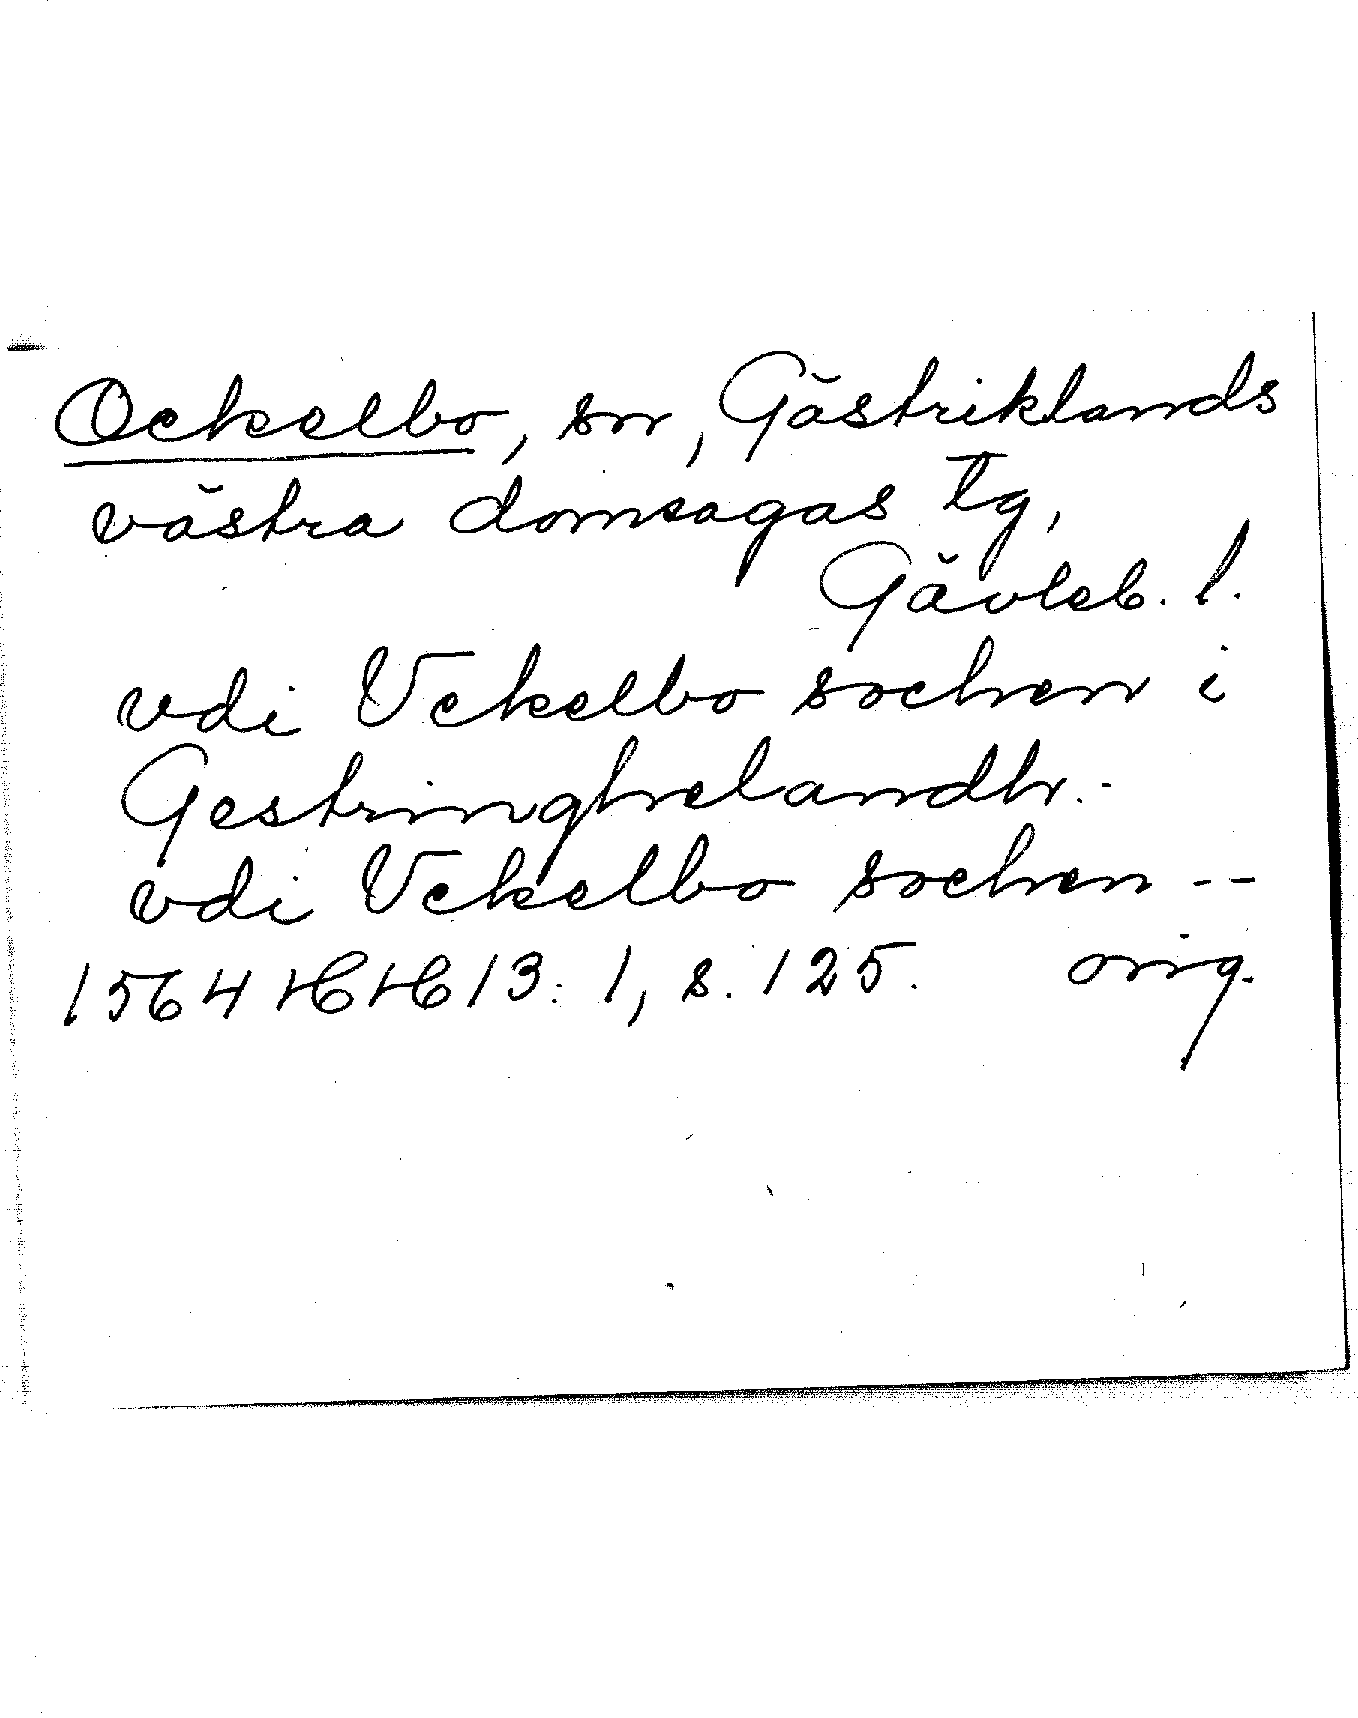 Ockelbo, sn, Gästriklands
västra domsagas tg,
Gävleb. l.
vdi Vckelbo sochen i
Gestringhelandh.-
vdi Vckelbo sochen --
1564 HH 13:1, s. 125. orig.